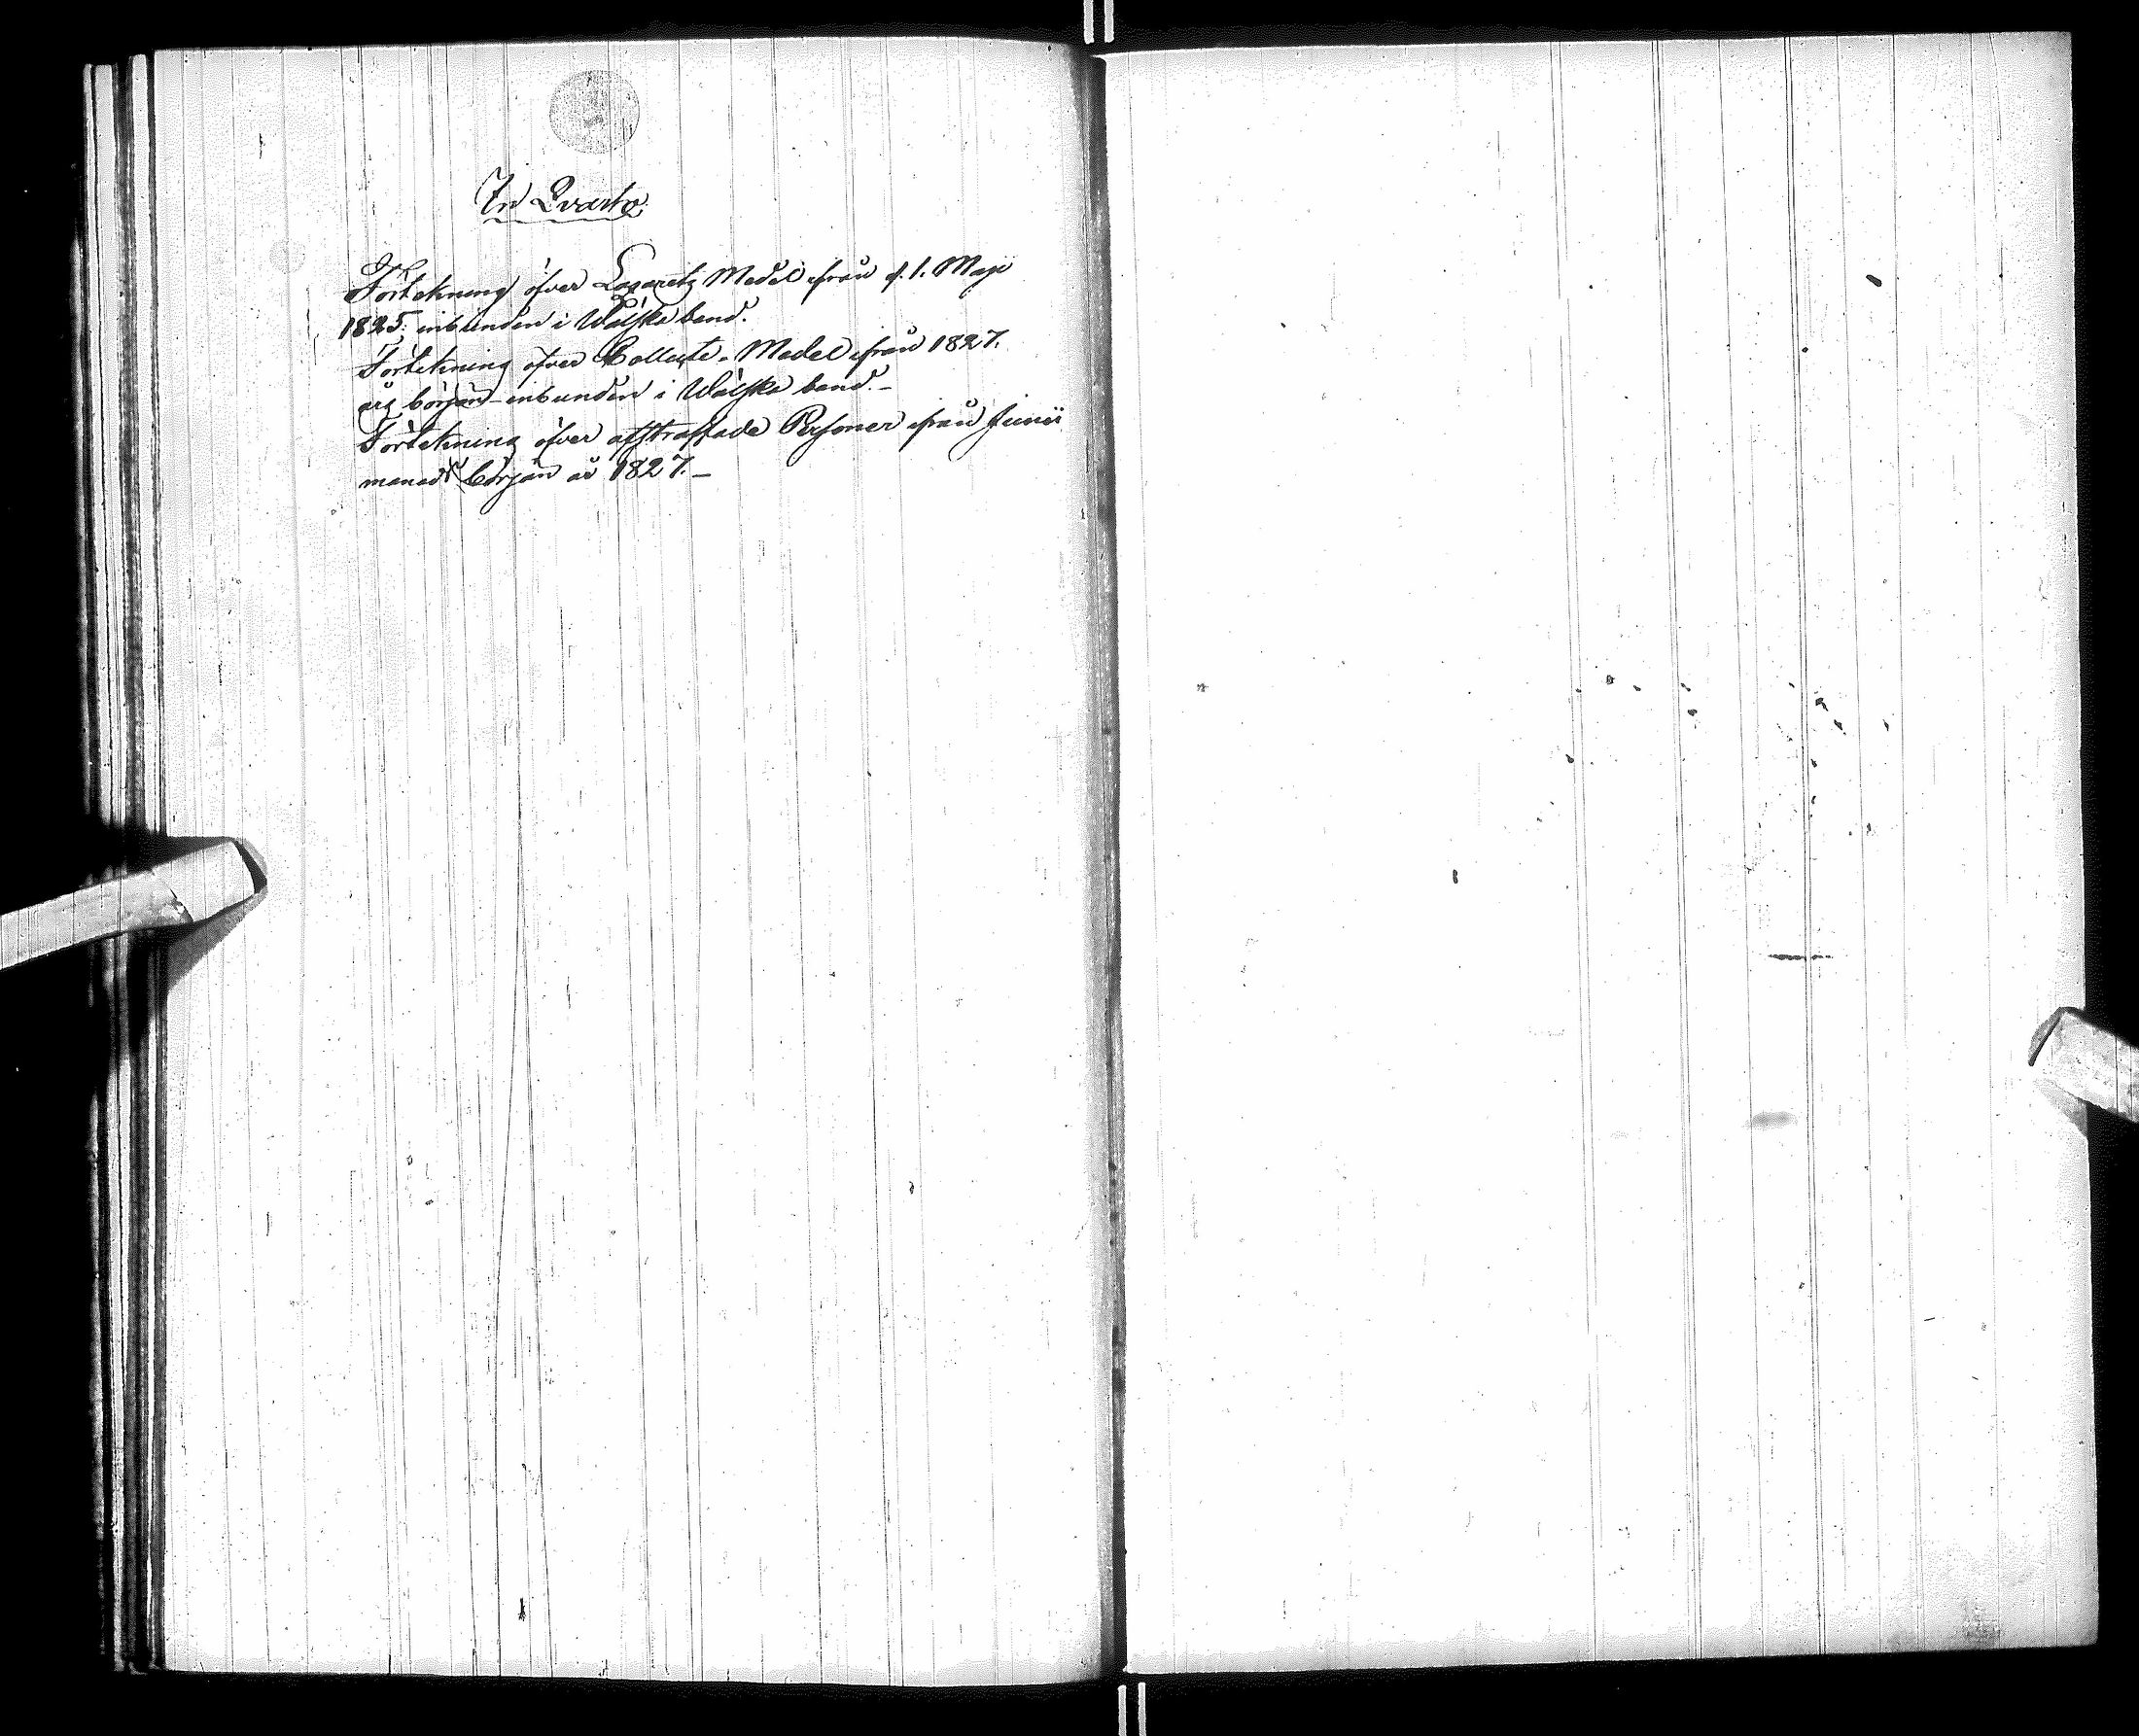 In Qvarto
Förtekning öfver Lazaretz Medel ifrån d. 1. Maji
1825. inbunden i Wälska band.
Förtekning öfver Collecte-Medel ifrån 1827.
års början inbunden i Wälska band.-
Förtekning öfver afstraffade Personer ifrån Junii
månads början år 1827.-